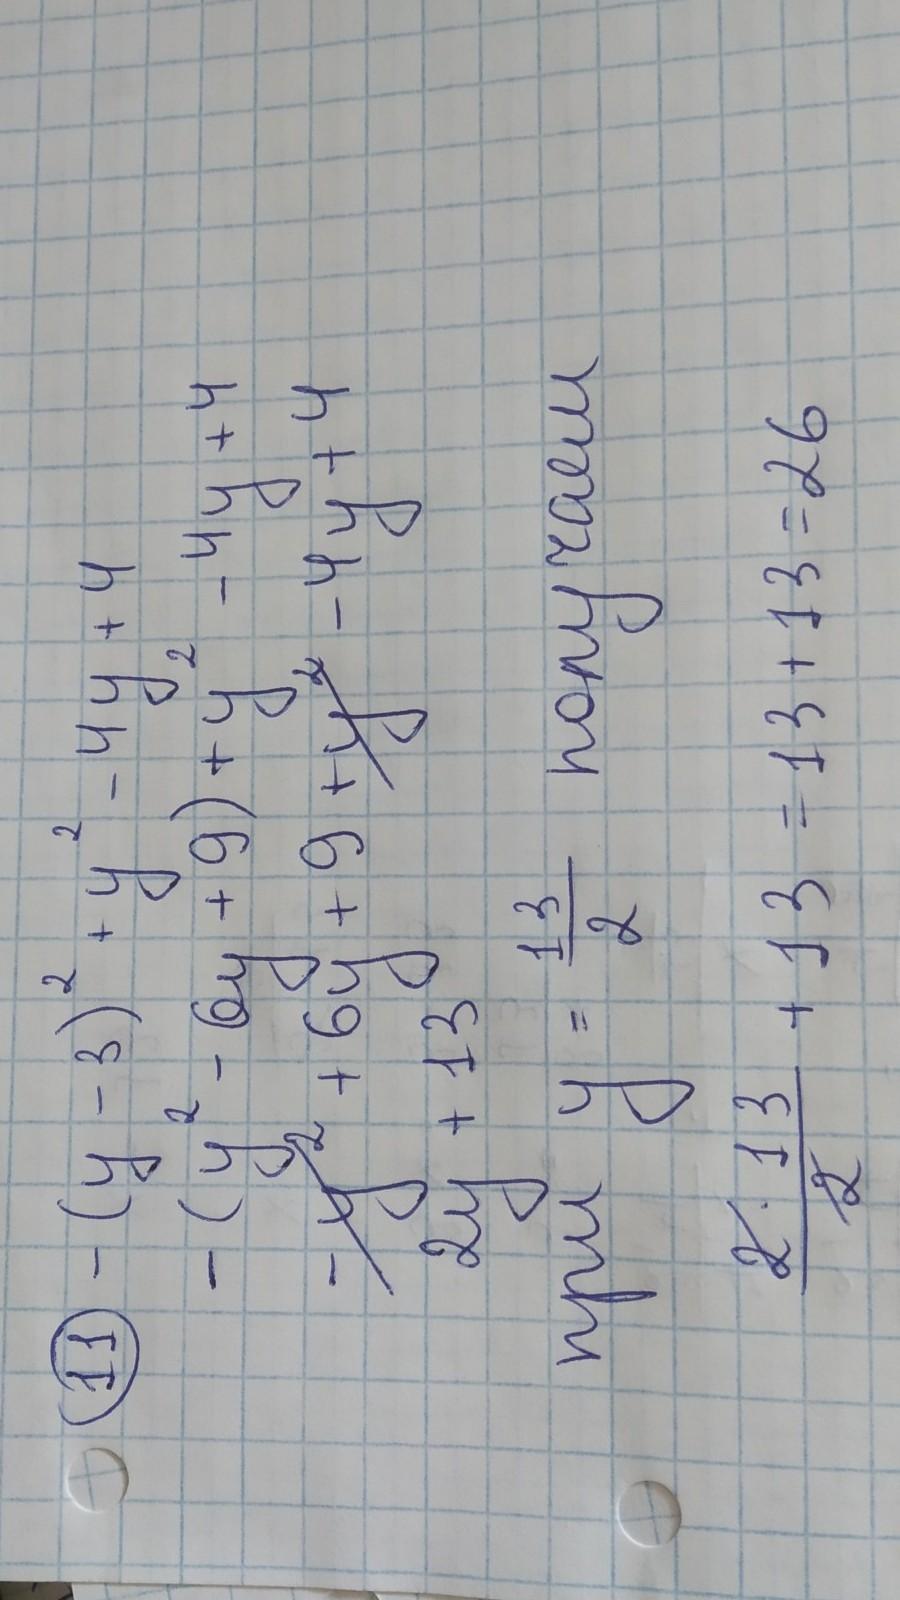 11 -(y - 3)² + y² - 4y + 4
-(y² - 6y + 9) + y² - 4y + 4
- y² + 6y + 9 + y² - 4y + 4
2y + 13
при y = 13/2 получаем
2 · 13/2 + 13 = 13 + 13 = 26